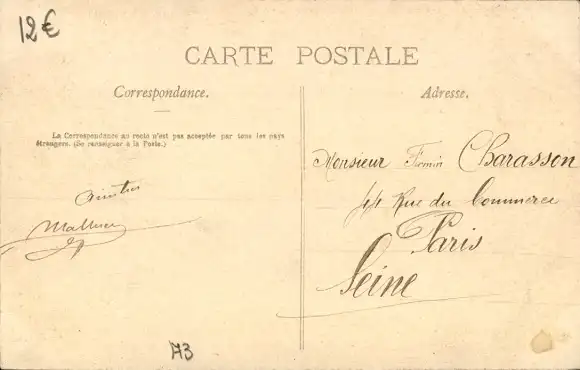 12€
CARTE POSTALE
Correspondance.
Adresse.
La Correspondance au recto n'est pas acceptée par tous les pays
étrangers. (Se renseigner à la Poste.)
Monsieur Firmin Charasson
44 Rue du Commerce
Paris
Seine
A3